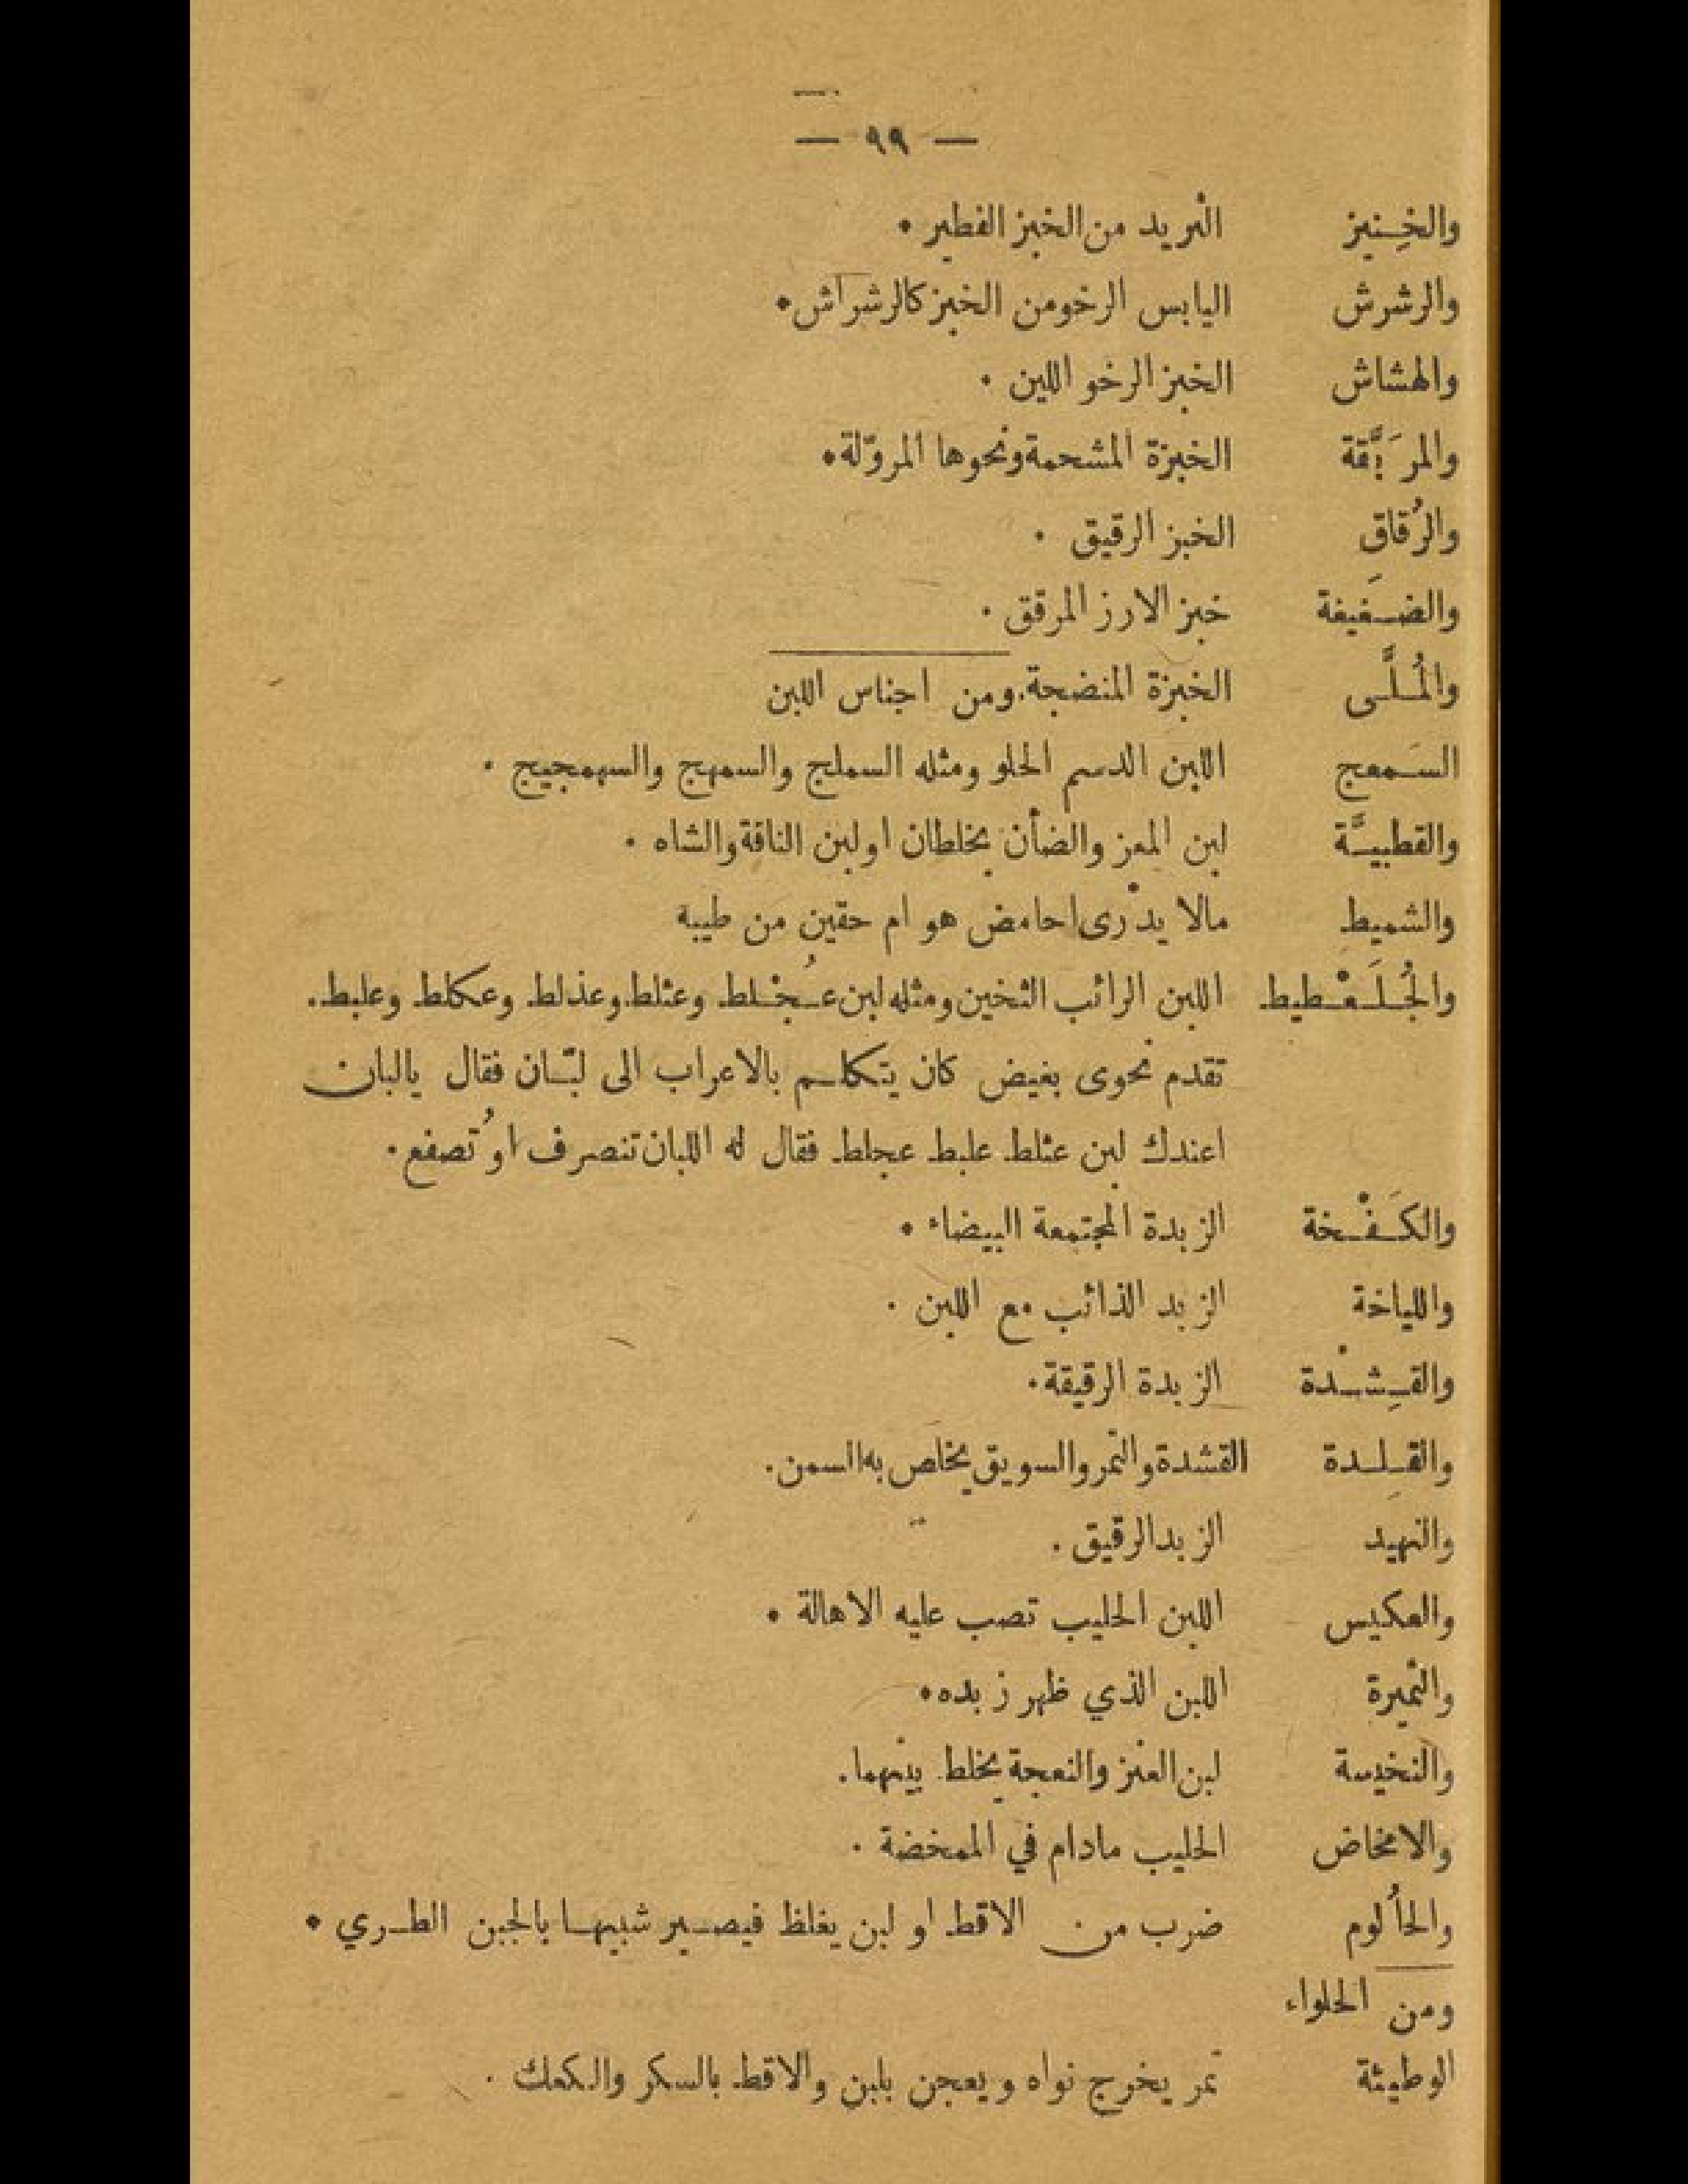 — ٩٩ —
والخِنيز الثريد من الخبز الفطير •
والرشرش اليابس الرخو من الخبز كالرشراش •
والهشاش الخبز الرخو اللين •
والمرَبَّقة الخبزة المشحمة ونحوها المروّلة •
والرُقاق الخبز الرقيق •
والضَغيغة خبز الارز المرقق •
والمُلَّى الخبزة المنضجة. ومن اجناس اللبن
السَمعج اللبن الدسم الحلو ومثله السملج والسمهج والسمهجيج •
والقطبيَّة لبن المعز والضأن يخلطان او لبن الناقة والشاه •
والشميط مالا يدْرى احامض هو ام حقين من طيبه
والجُلَعْطيط اللبن الرائب الثخين ومثله لبن عُجْلط وعثلط وعذلط وعكلط وعلبط..
تقدم نحوى بغيض كان يتكلم بالاعراب الى لبّان فقال يالبان
اعندك لبن عثلط علبط عجلط فقال له اللبان تنصرف او تُصفع •
والكَفْخة الزبدة المجتمعة البيضاء •
واللياخة الزبد الذائب مع اللبن •
والقِشْدة الزبدة الرقيقة •
والقِلِدة القشدة والتمر والسويق يخلص به السمن.
والنهيد الزبد الرقيق .
والعكيس اللبن الحليب تصب عليه الاهالة •
والثميرة اللبن الذي ظهر زبده •
والنخيسة لبن العنز والنعجة يخلط بينهما.
والامخاض الحليب مادام في الممخضة •
والحأُلوم ضرب من الاقط او لبن يغلظ فيصير شبيها بالجبن الطري •
ومن الحلواء
الوطيئة تمر يخرج نواه ويعجن بلبن والاقط بالسكر والكعك •